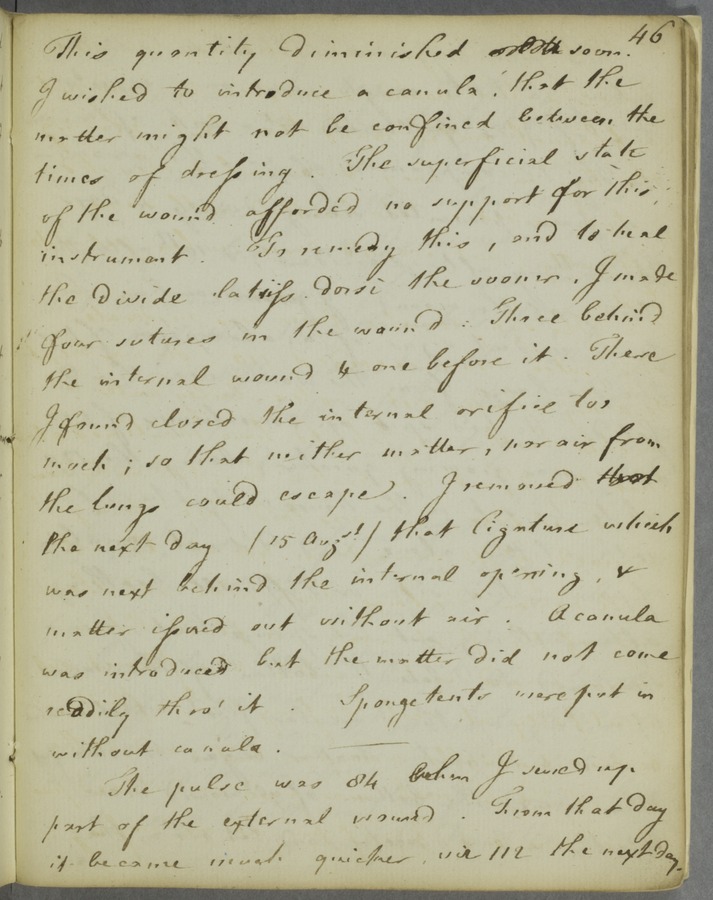 46
This quantity diminished soon.
I wished to introduce a canula, that the
matter might not be confined between the
times of dressing. The superficial state
of the wound afforded no support for this
instrument. To remedy this, and to heal
the divide latiss. dorsi the sooner, I made
four sutures in the wound: Three behind
the internal wound & one before it. There
I found closed the internal orifice too
much; so that neither matter, nor air from
the lungs could escape. I removed that
the next day (15 Augst) that ligature which
was next behind the internal opening, &
matter issued out without air. A canula
was introduced but the matter did not come
readily thro' it. Sponge tents were put in
without canula.
The pulse was 84 when I sewed up
part of the external wound. From that day
it became much quicker, viz 112 the next day.